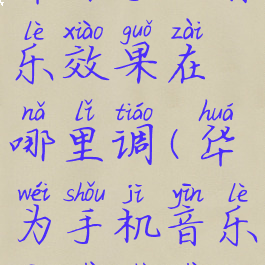 lè xiào guǒ zài
乐效果在
nǎ lǐ tiáo huá
哪里调(华
wéi shǒu jī yīn lè
为手机音乐